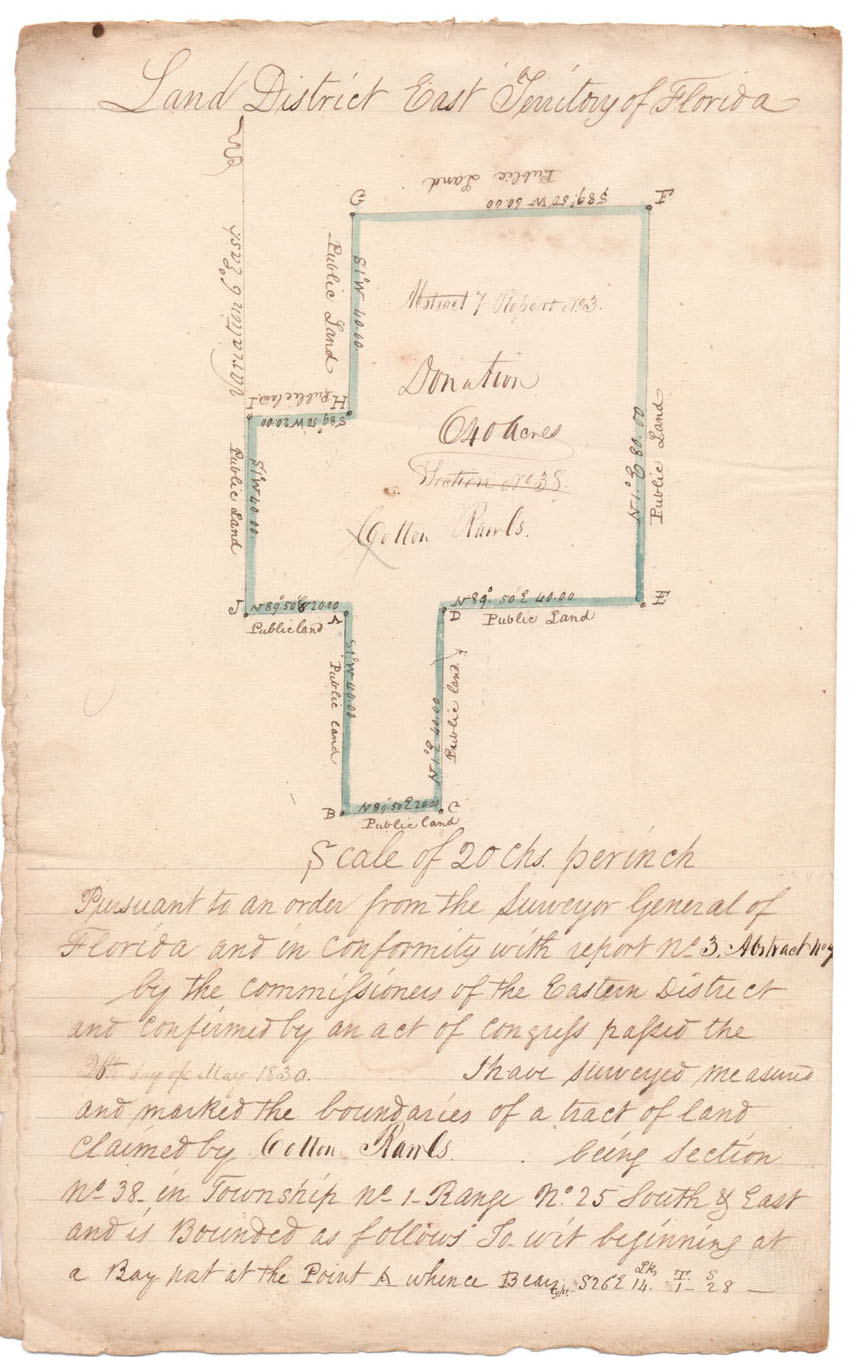 Land District East Territory of Florida
Variation 9° East
Public Land
S 89° 50 W 60.00
G
F
Public Land
S 1° W 40.00
Abstract 7 Report No 3.
Donation
640 Acres
Section No 38.
Cotton Rawls.
Public Land
N 1° E 80.00
I
Public land
H
S 89° 50 W 20.00
Public Land
S 1° W 40.00
J
N 89° 50 E 20.00
A
Public land
D
N 89° 50 E 40.00
E
Public Land
S 1° W 40.00
Public land
N 1° E 40.00
Public land
B
N 89° 50 E 20.00
C
Public land
Scale of 20 Chs. per inch
Pursuant to an order from the Surveyor General of
Florida and in conformity with report No 3. Abstract No 7
by the commissioners of the Eastern District
and confirmed by an act of Congress passed the
26th day of May 1830. I have surveyed measured
and marked the boundaries of a tract of land
claimed by Cotton Rawls. being Section
No 38 in Township No 1 Range No. 25 South & East
and is Bounded as follows To wit beginning at
a Bay post at the Point A whence Bears S 26 E Lks 14. T. 1 S 28